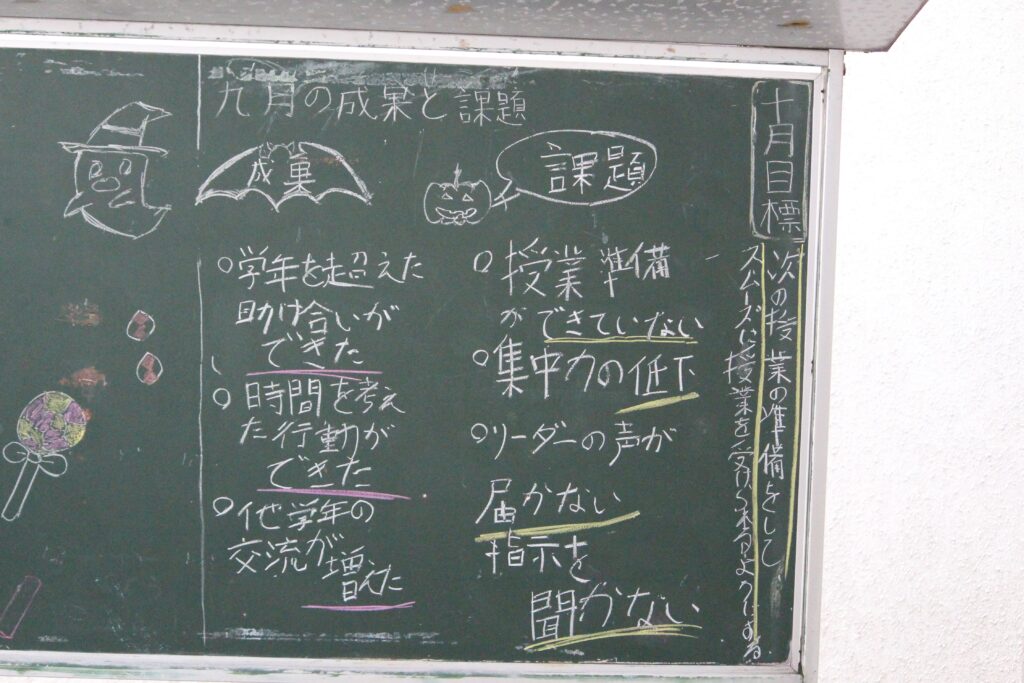 九月の成果と課題
成果
○学年を超えた
助け合いが
できた
○時間を考え
た行動が
できた
○他学年の
交流が増えた
課題
○授業準備
ができていない
○集中力の低下
○リーダーの声が
届かない
指示を
聞かない
十月目標
次の授業の準備をして
スムーズに授業を受けられるようにする